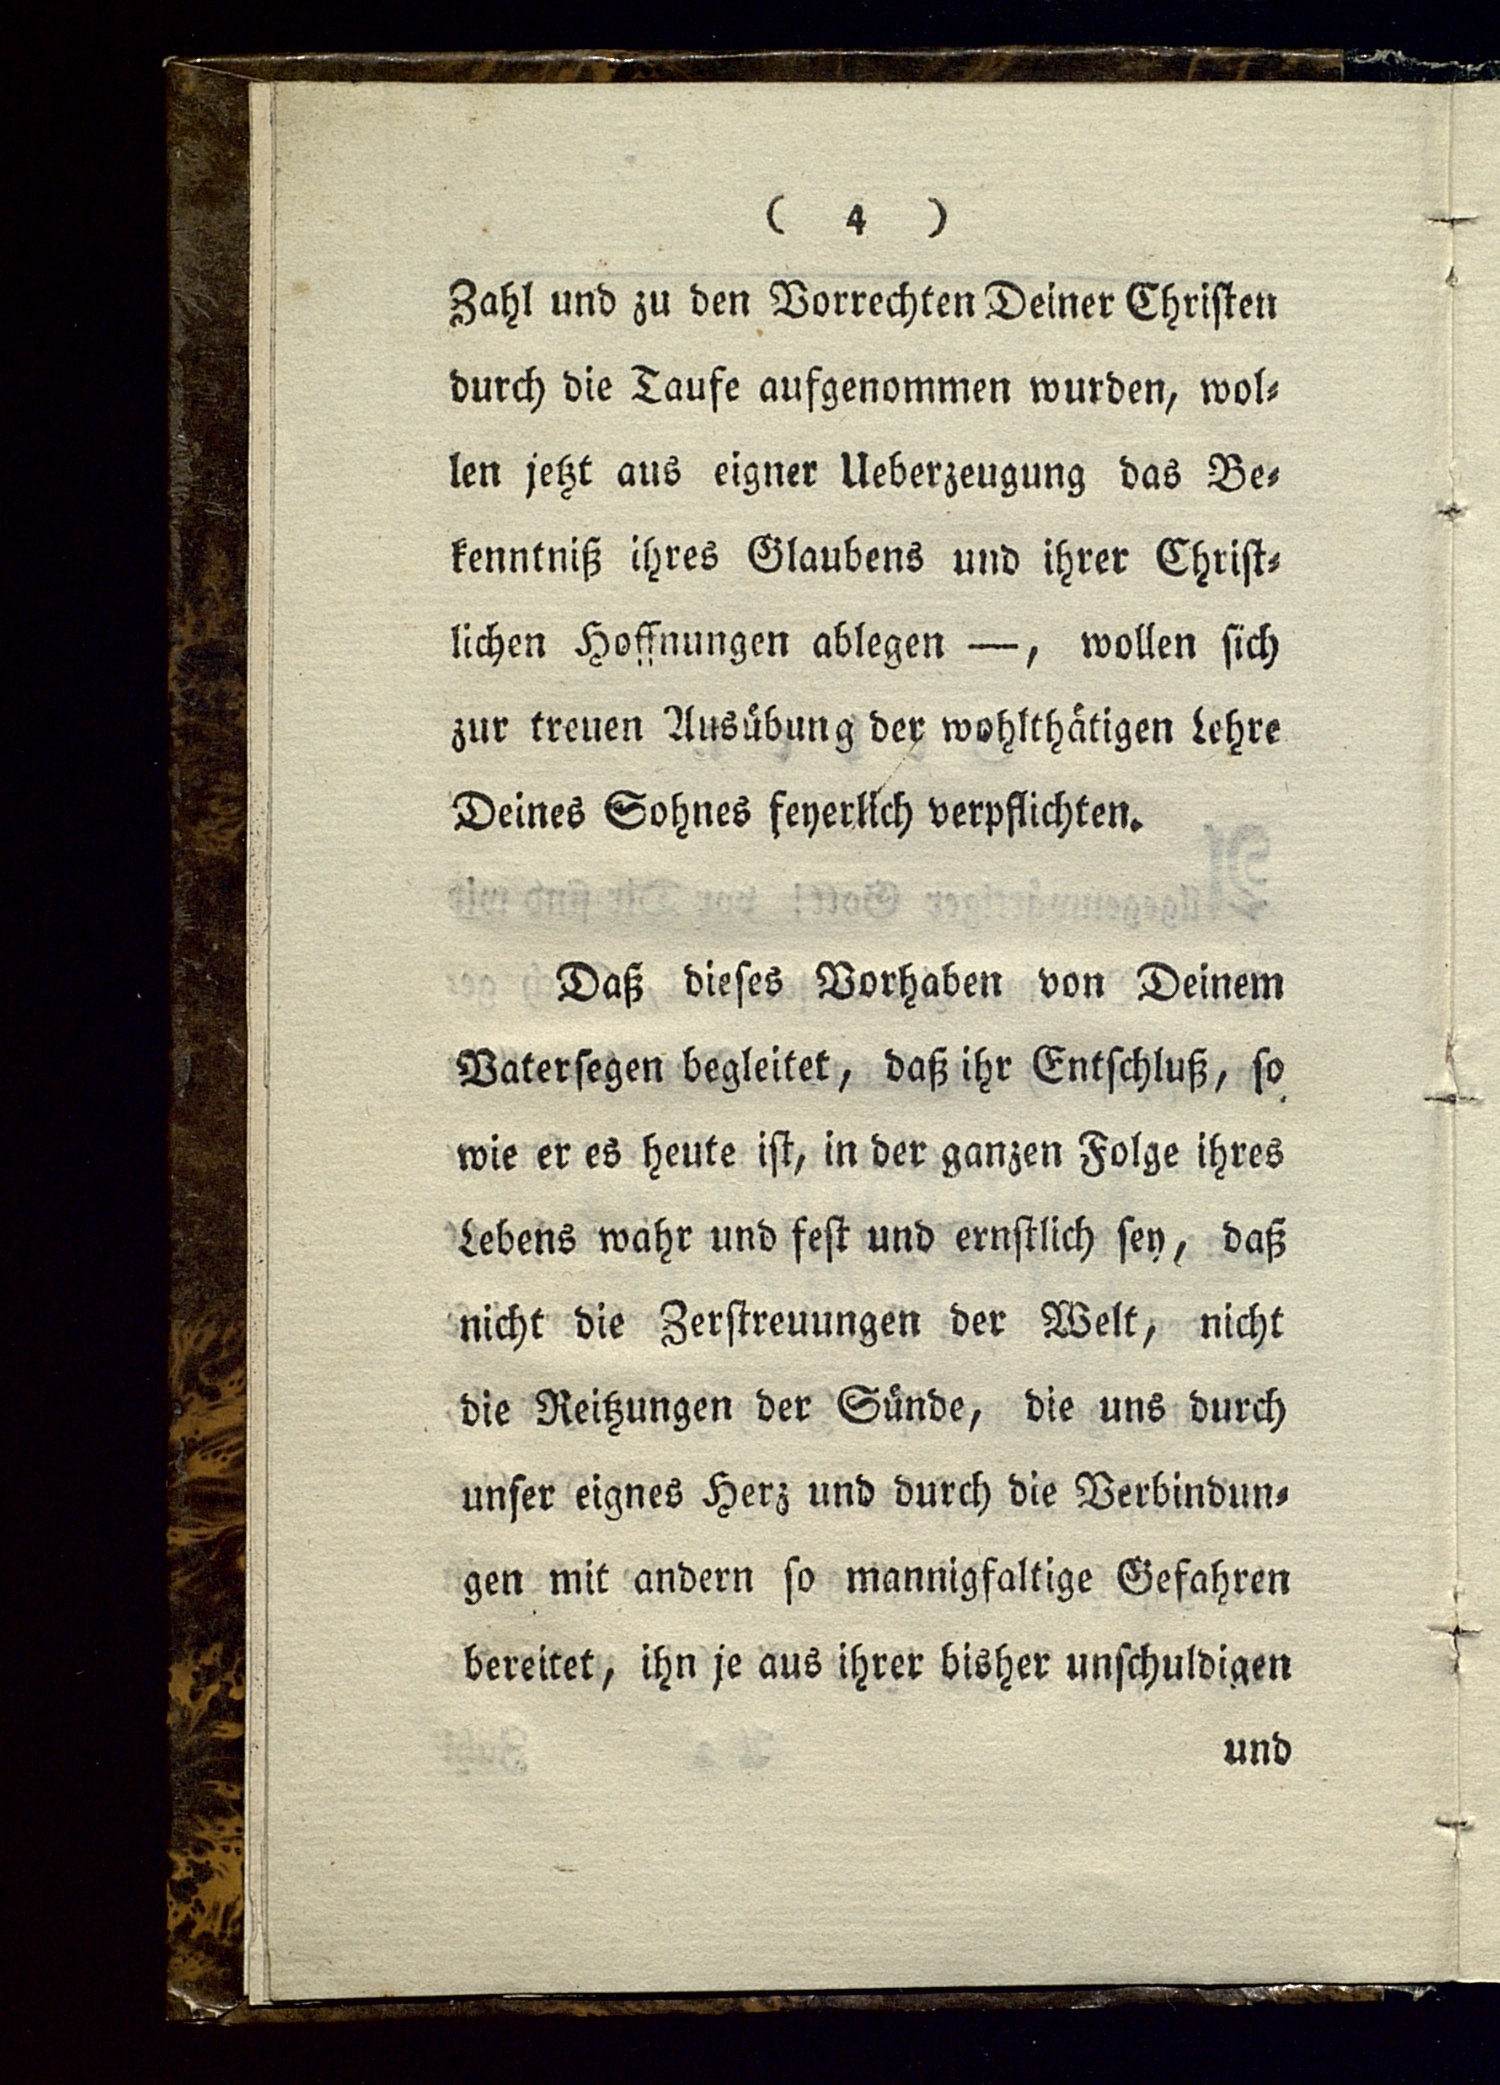 ( 4 )
Zahl und zu den Vorrechten Deiner Christen
durch die Taufe aufgenommen wurden, wol-
len jetzt aus eigner Ueberzeugung das Be-
kenntniß ihres Glaubens und ihrer Christ-
lichen Hoffnungen ablegen —, wollen sich
zur treuen Ausübung der wohlthätigen Lehre
Deines Sohnes feyerlich verpflichten.
Daß dieses Vorhaben von Deinem
Vatersegen begleitet, daß ihr Entschluß, so
wie er es heute ist, in der ganzen Folge ihres
Lebens wahr und fest und ernstlich sey, daß
nicht die Zerstreuungen der Welt, nicht
die Reitzungen der Sünde, die uns durch
unser eignes Herz und durch die Verbindun-
gen mit andern so mannigfaltige Gefahren
bereitet, ihn je aus ihrer bisher unschuldigen
und